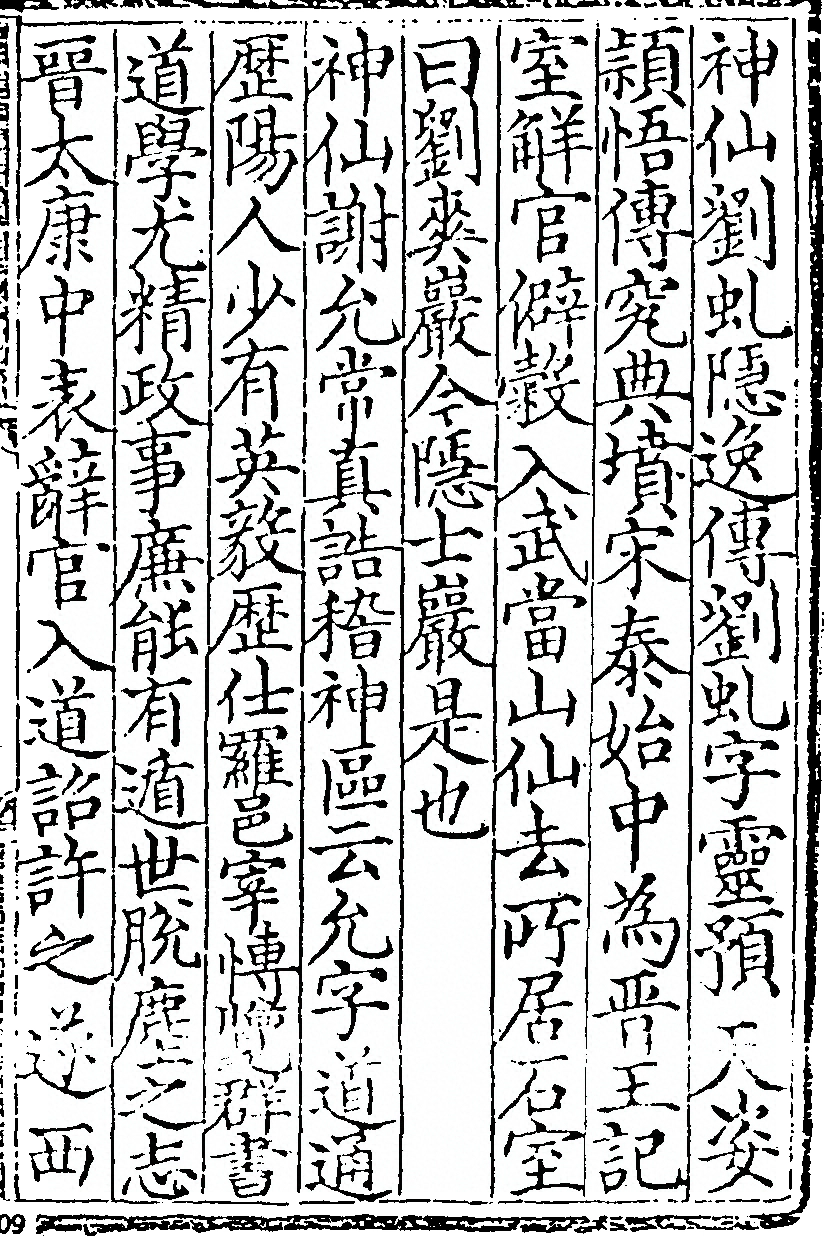 神仙劉虬隱逸傳劉虬字靈預天姿
頴悟傳究典墳宋泰始中為晋王記
室觧官僻糓入武當山仙去所居石室
曰劉䶮巖今隱士巖是也
神仙謝允常真誥稽神區云允字道通
歷陽人少有英毅歷仕羅邑宰愽覽群書
道學尤精政事廉能有遁世脫塵之志
晉太康中表辭官入道詔許之遂西
09